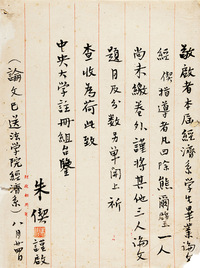 敬啟者本屆經濟系學生畢業論文
經偰指導者凡四除熊爾璧一人
尚未繳卷外謹將其他三人論文
題目及分數另單開上祈
查收為荷此致
中央大學註冊組台鑒
朱偰謹啟
(論文已送法學院經濟系) 八月廿四日